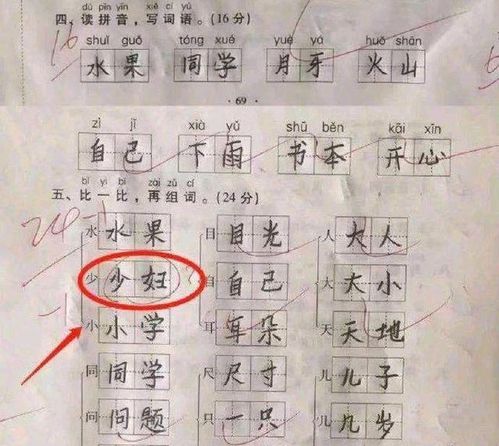 dú pīn yīn xiě cí yǔ
四、读拼音，写词语。(16分)
16
shuǐ guǒ tóng xué yuè yá huǒ shān
水果 同学 月牙 火山
· 69 ·
zì jǐ xià yǔ shū běn kāi xīn
自己 下雨 书本 开心
bǐ yi bǐ zài zǔ cí
五、比一比，再组词。(24分)
24-1
水 水果 目 目光 人 大人
少 少妇 自 自己 大 大小
-1
小 小学 耳 耳朵 天 天地
同 同学 尺 尺寸 儿 儿子
问 问题 只 一只 几 几岁